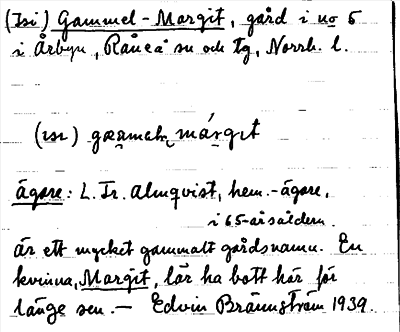 (Isi) Gammel-Margit, gård i no 5
i Årbyn, Råneå sn och tg, Norrb. l.
márgıt
ägare: L. Fr. Almqvist, hem.-ägare,
i 65-årsåldern.
är ett mycket gammalt gårdsnamn. En
kvinna, Margit, lär ha bott här för
länge sen. — Edvin Brännström 1939.